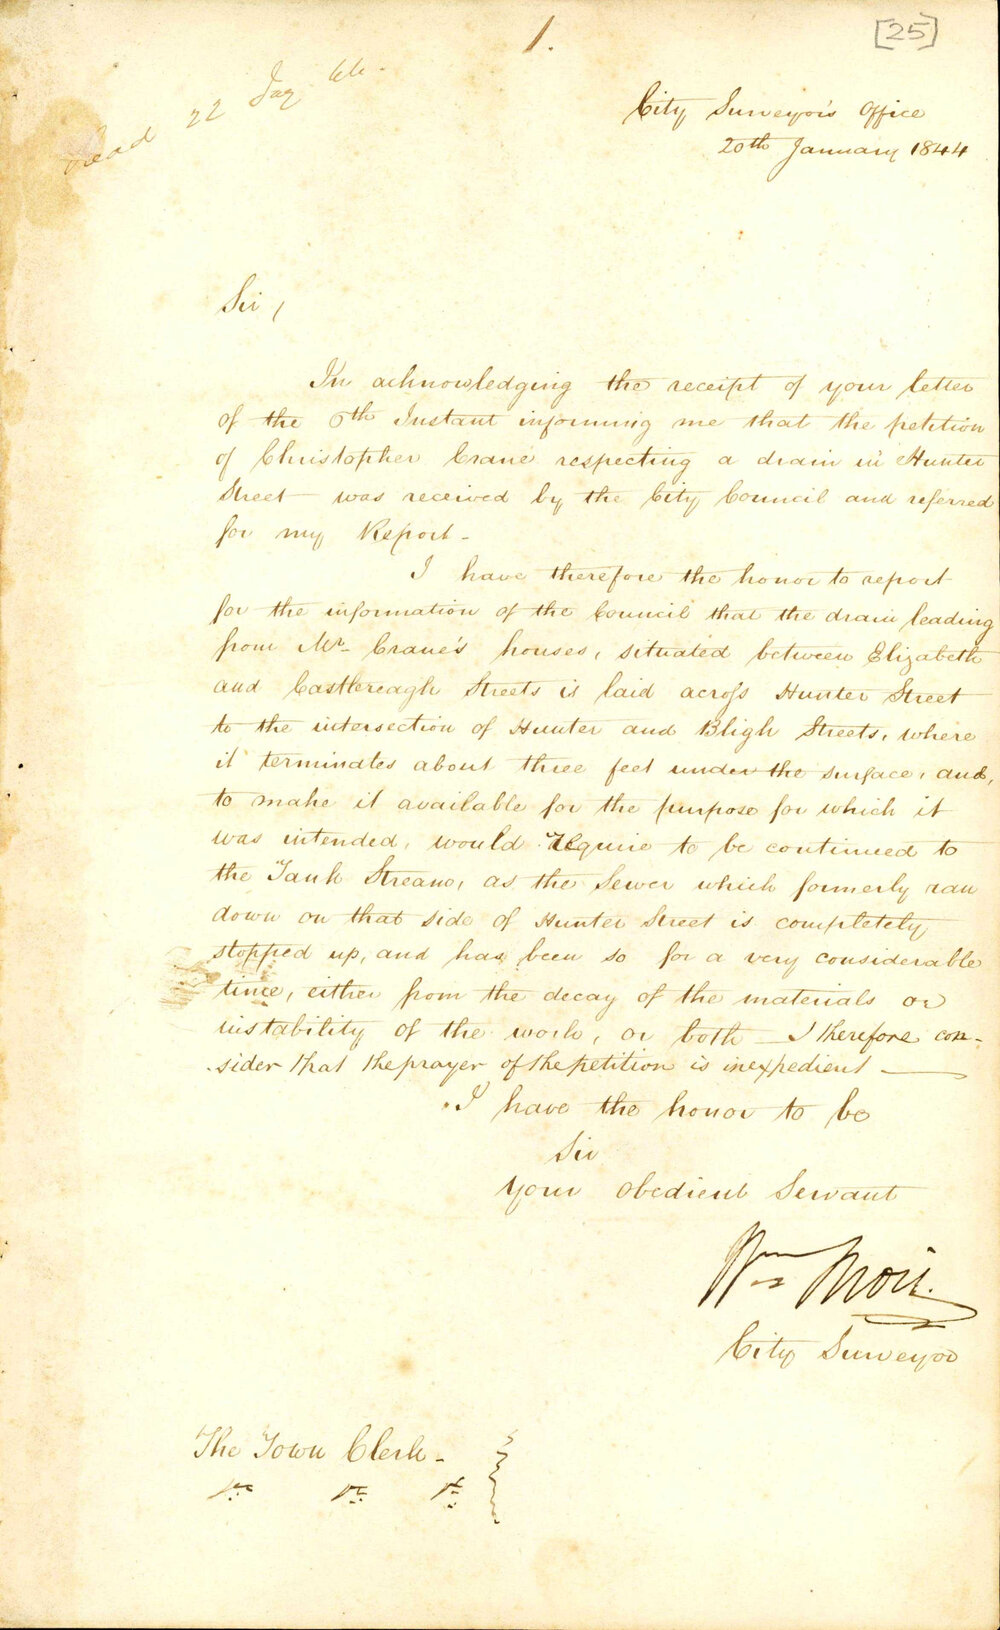 1.
[25]
Read 22 Jay 44.
City Surveyor's Office
20th January 1844
Sir,
In acknowledging the receipt of your letter
of the 6th Instant informing me that the petition
of Christopher Crane respecting a drain in Hunter
Street was received by the City Council and referred
for my Report -
I have therefore the honor to report
for the information of the Council that the drain leading
from Mr. Crane's houses, situated between Elizabeth
and Castlereagh Streets is laid across Hunter Street
to the intersection of Hunter and Bligh Streets, where
it terminates about three feet under the surface, and,
to make it available for the purpose for which it
was intended, would require to be continued to
the Tank Stream, as the Sewer which formerly ran
down on that side of Hunter Street is completely
stopped up, and has been so for a very considerable
time, either from the decay of the materials or
instability of the work, or both - I therefore con-
sider that the prayer of the petition is inexpedient
I have the honor to be
Sir
Your obedient Servant
Wm
City Surveyor
The Town Clerk -